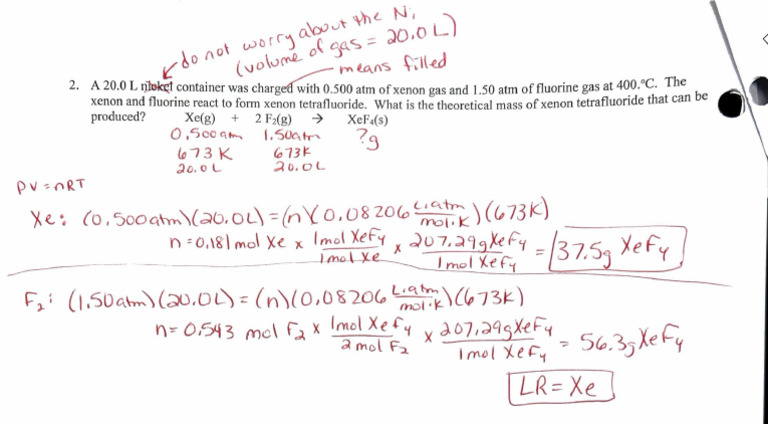 do not worry about the Ni
(volume of gas = 20.0L)
means filled
2. A 20.0 L nickel container was charged with 0.500 atm of xenon gas and 1.50 atm of fluorine gas at 400.°C. The
xenon and fluorine react to form xenon tetrafluoride. What is the theoretical mass of xenon tetrafluoride that can be
produced? Xe(g) + 2 F₂(g) → XeF₄(s)
0.500atm 1.50atm ?g
673 K 673K
20.0L 20.0L
PV=nRT
Xe: (0.500atm)(20.0L)=(n)(0.08206 L·atm/mol·K)(673K)
n=0.181mol Xe x 1mol XeF₄/1mol Xe x 207.29gXeF₄/1mol XeF₄ = 37.5g XeF₄
F₂: (1.50atm)(20.0L)=(n)(0.08206 L·atm/mol·K)(673K)
n=0.543 mol F₂ x 1mol XeF₄/2mol F₂ x 207.29gXeF₄/1mol XeF₄ = 56.3gXeF₄
LR=Xe